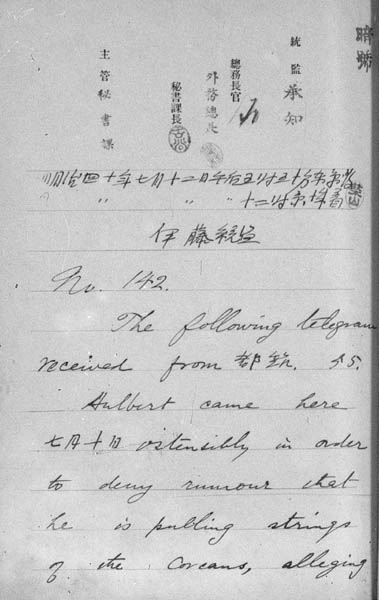 暗號
統監 承知
總務長官
外務總長
秘書課長
主管 秘書課
明治四十年七月十二日午后五時五十分東京發
十二時京城着
伊藤統監
No. 142.
The following telegram
received from 都筑. 55.
Hulbert came here
七月十日 ostensibly in order
to deny rumour that
he is pulling strings
of the Coreans, alleging